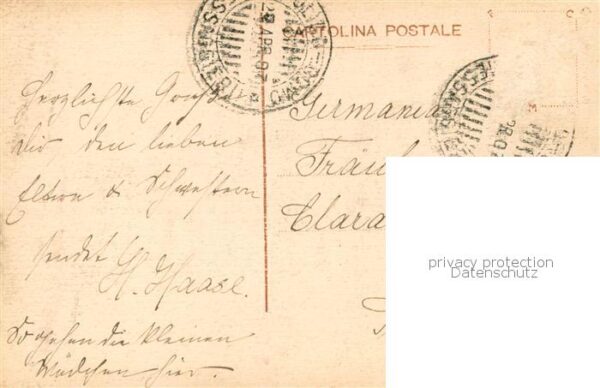 CARTOLINA POSTALE
Herzlichste Grüße
Dir den lieben
Eltern & Schwestern
sendet
H. Haase.
So gehen die kleinen
Mädchen hier.
Germania
Fräul
Clara
privacy protection
Datenschutz